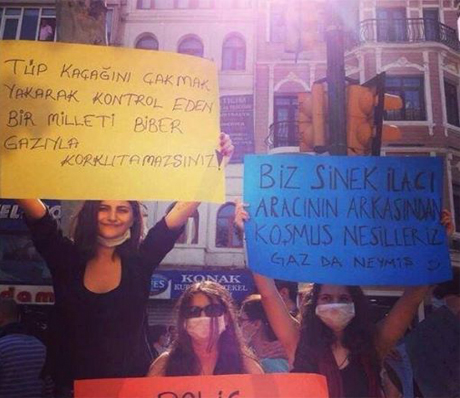 TÜP KAÇAĞINI ÇAKMAK
YAKARAK KONTROL EDEN
BİR MİLLETİ BİBER
GAZIYLA
KORKUTAMAZSINIZ!
BİZ SİNEK İLACI
ARACININ ARKASINDAN
KOŞMUŞ NESİLLERİZ
GAZ DA NEYMİŞ
KONAK